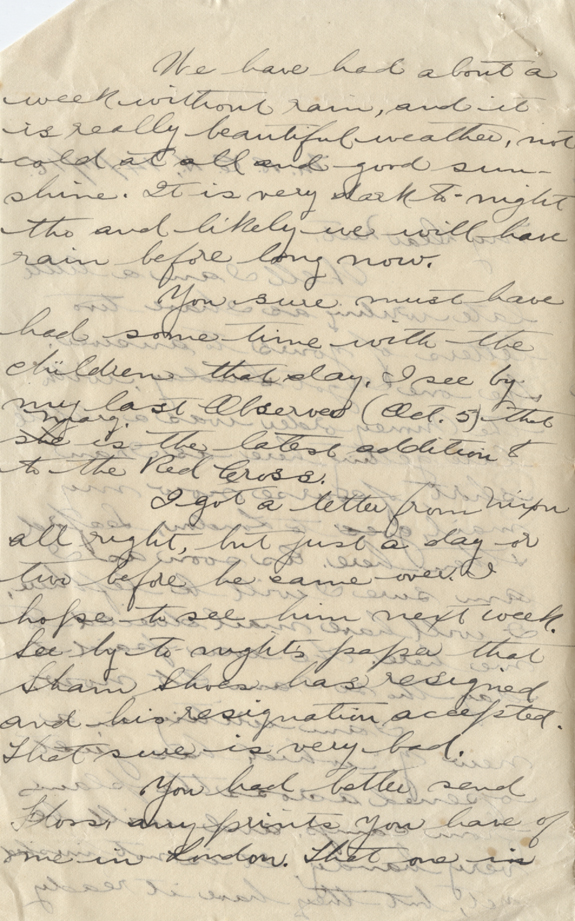 We have had about a
week without rain, and it
is really beautiful weather, not
cold at all and good sun-
shine. It is very dark to-night
tho and likely we will have
rain before long now.
You sure must have
had some time with the
children that day. I see by
my last Observer (Oct. 5) that
Marg.
she is the latest addition
to the Red Cross.
I got a letter from Nixon
all right, but just a day or
two before he came over. I
hope to see him next week.
See by to-nights paper that
Sham Shoes has resigned
and his resignation accepted.
That sure is very bad.
You had better send
Floss, any prints you have of
me in London. That one in